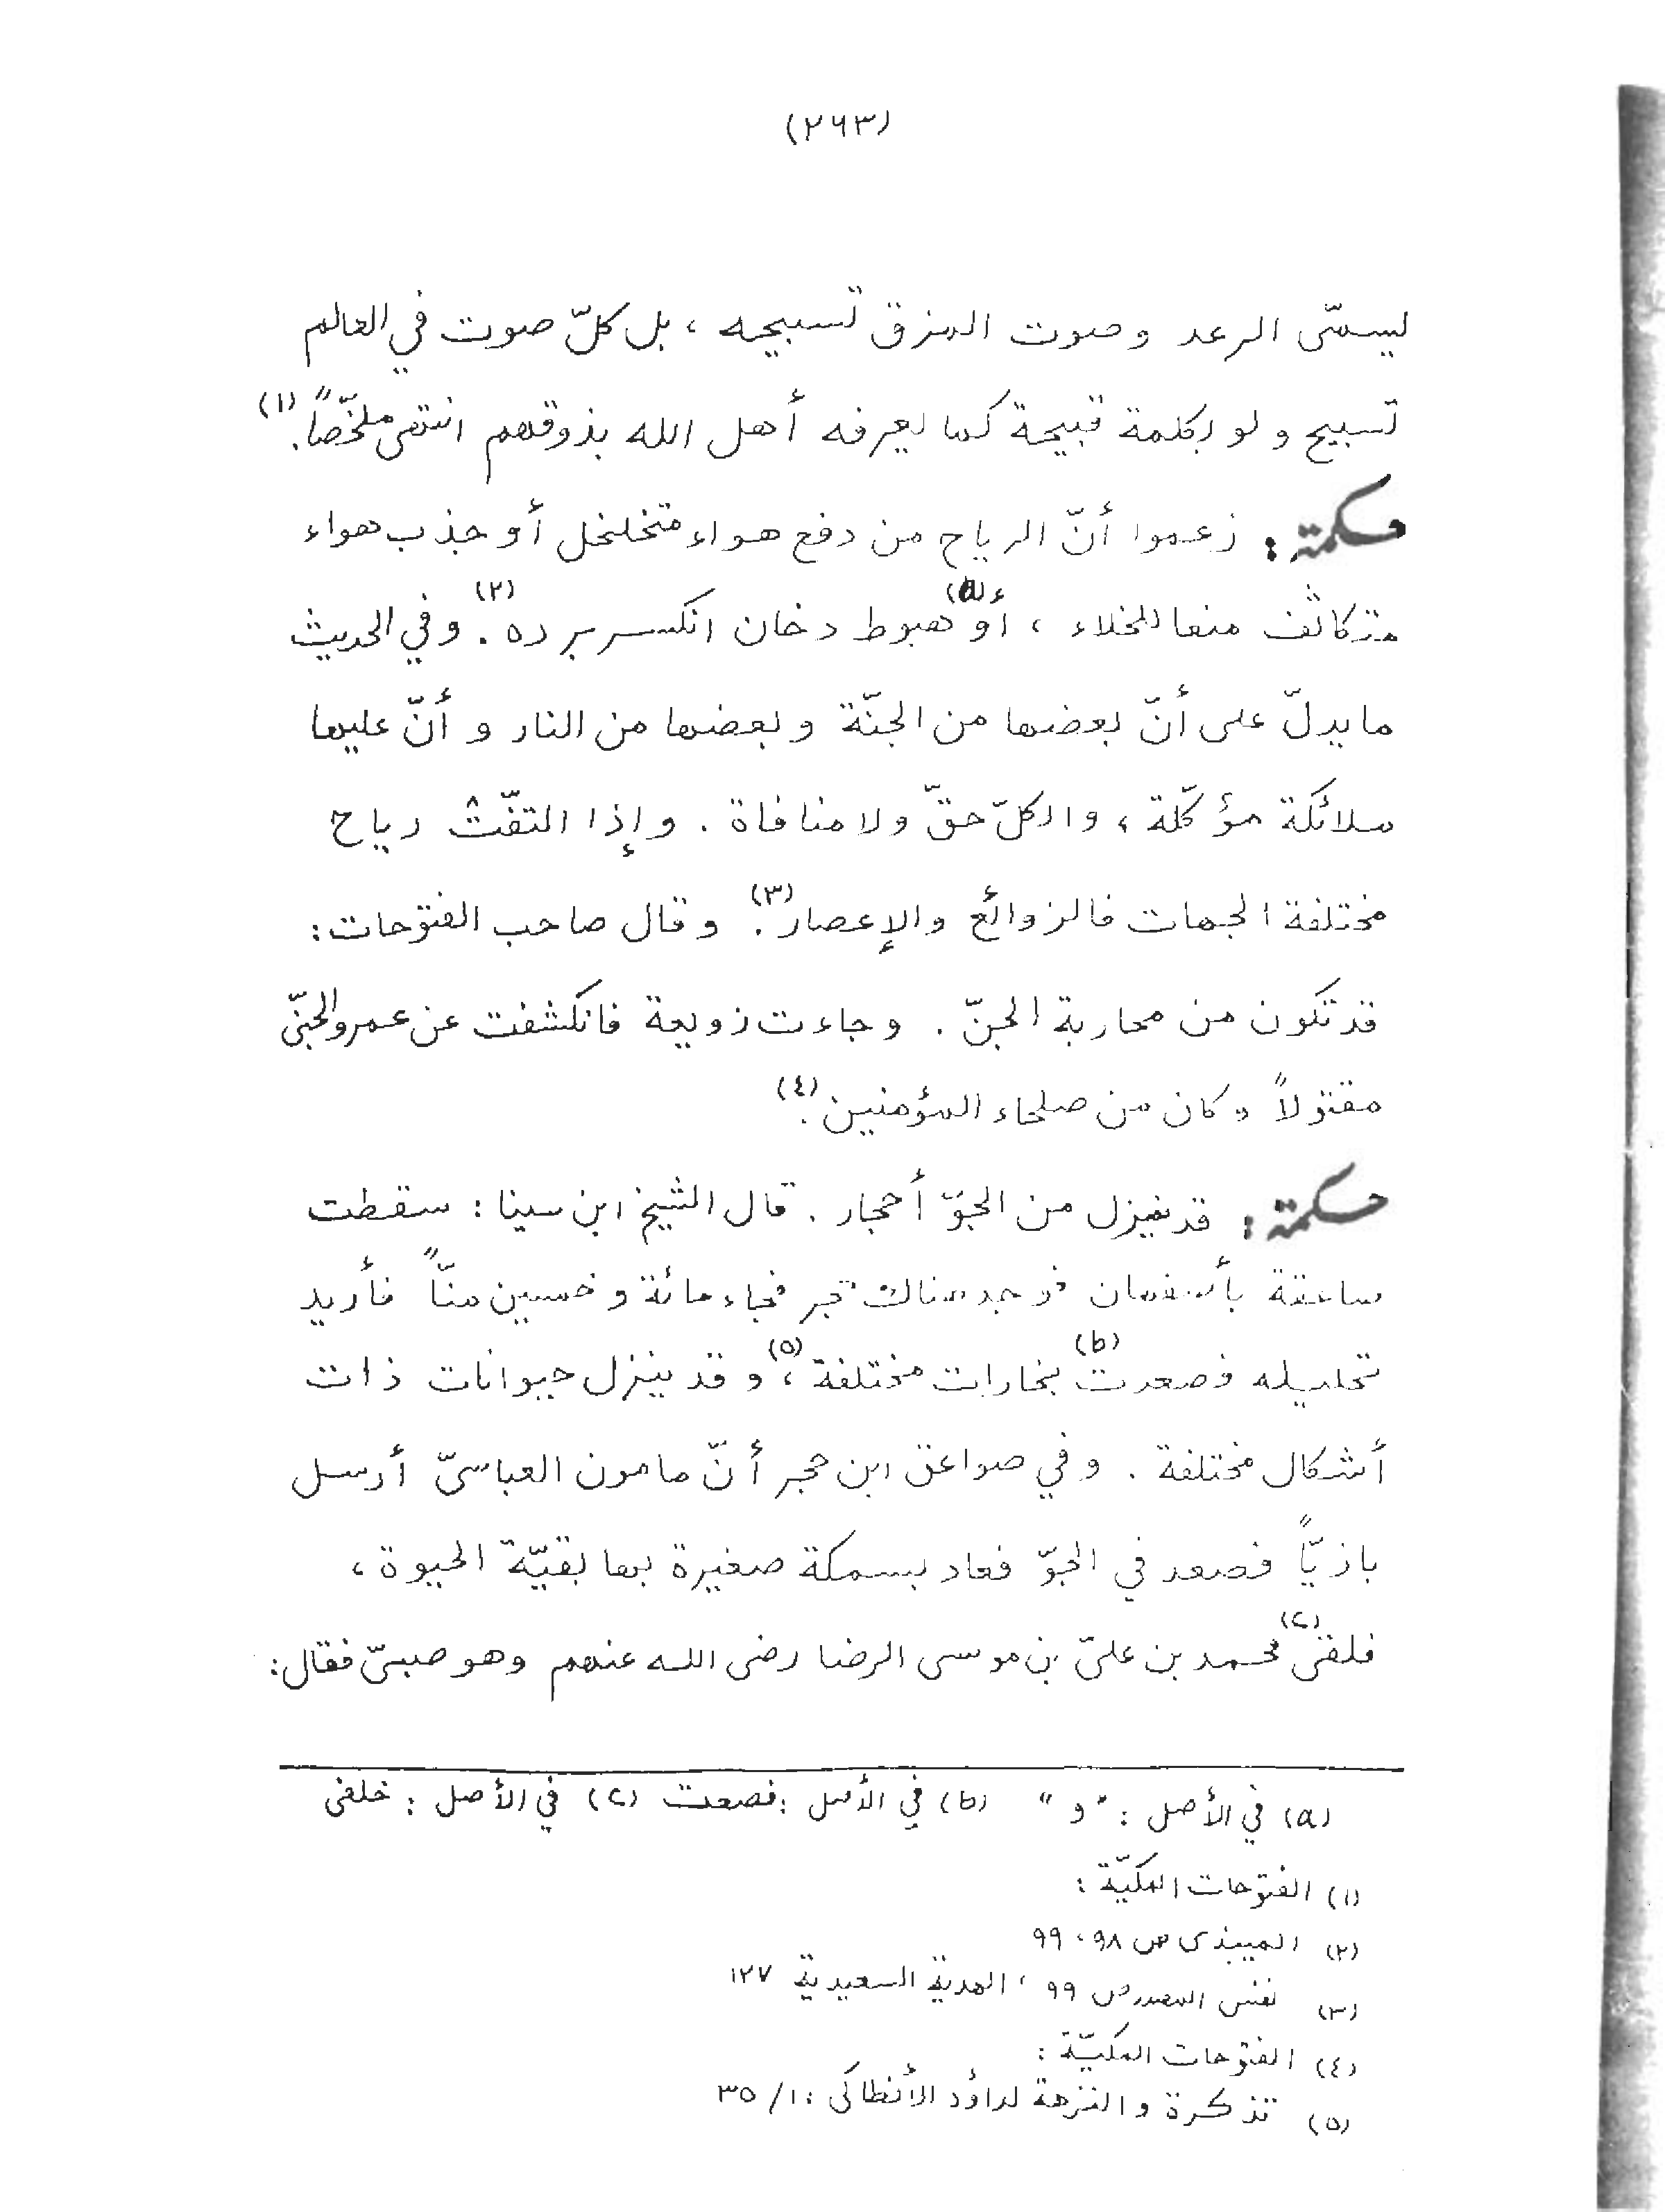 (٢٦٣)
يسمّى الرعد وصوت المزق تسبيحه ، بل كلّ صوت في العالم
تسبيح ولو بكلمة قبيحة كما يعرفه أهل الله بذوقهم انتهى ملخّصاً. (١)
حكمة : زعموا أنّ الرياح من دفع هواء متخلخل أو جذب هواء
متكاثف منعا للخلاء ، أو (a) هبوط دخان انكسر برده . (٢) وفي الحديث
ما يدلّ على أنّ بعضها من الجنّة وبعضها من النار وأنّ عليها
ملائكة مؤكّلة ، والكلّ حقّ ولا منافاة . وإذا التفّت رياح
مختلفة الجهات فالزوائع والإعصار . (٣) وقال صاحب الفتوحات :
قد تكون من محاربة الجنّ . وجاءت زوبعة فانكشفت عن عمرو الجنّى
مقتولاً وكان من صلحاء المؤمنين . (٤)
حكمة : قد ينزل من الجوّ أحجار . قال الشيخ ابن سينا : سقطت
صاعقة بأصفهان فوجد هناك حجر فجاء مائة وخمسين منّاً فأريد
تحليله فصعدت (b) بخارات مختلفة ، (٥) وقد ينزل حيوانات ذات
أشكال مختلفة . وفي صواعق ابن حجر أنّ مامون العباسىّ أرسل
بازيّاً فصعد في الجوّ فعاد بسمكة صغيرة بها بقيّة الحيوة ،
فلقى (c) محمد بن علىّ بن موسى الرضا رضى الله عنهم وهو صبىّ فقال :
(a) في الأصل : "و" (b) في الأصل : فصعت (c) في الأصل : خلفى
(١) الفتوحات المكيّة :
(٢) الميبذى ص ٩٨ ، ٩٩
(٣) نفس المصدر ص ٩٩ ، الهدية السعيدية ١٢٧
(٤) الفتوحات المكيّة :
(٥) تذكرة والنزهة لداؤد الأنطاكى : ١/ ٣٥